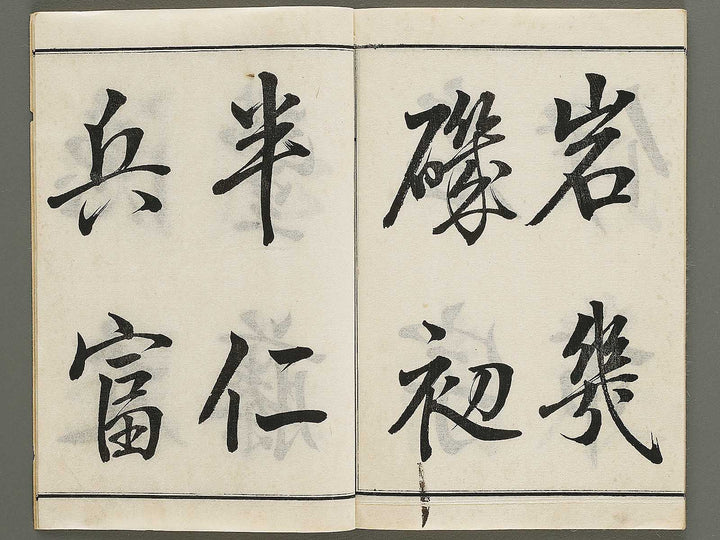 岩幾
磯初
半仁
兵富